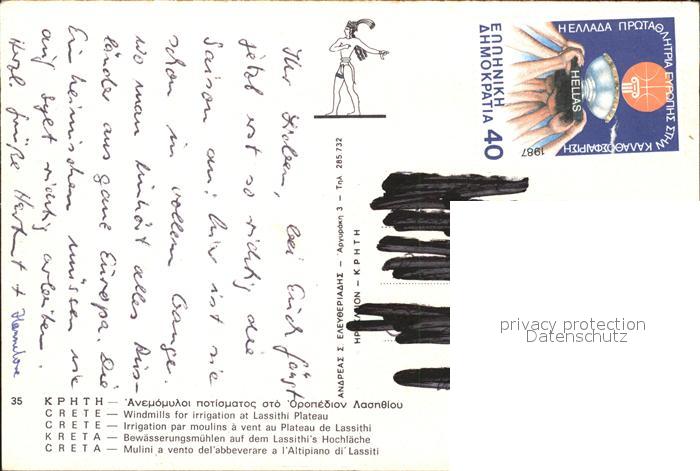 Ihr Lieben, bei Euch fängt
jetzt erst so richtig die
Saison an! hier ist sie
schon in vollem Gange.
wo man hinhört alles Aus-
länder aus ganz Europa. Die
Einheimischen müssen wie
auf Sylt richtig arbeiten.
Grüße Hartmut +
35 ΚΡΗΤΗ — Ἀνεμόμυλοι ποτίσματος στό Ὀροπέδιον Λασηθίου
CRETE — Windmills for irrigation at Lassithi Plateau
CRETE — Irrigation par moulins à vent au Plateau de Lassithi
KRETA — Bewässerungsmühlen auf dem Lassithi's Hochläche
CRETA — Mulini a vento del'abbeverare a l'Altipiano di Lassiti
ΑΝΔΡΕΑΣ Σ. ΕΛΕΥΘΕΡΙΑΔΗΣ — Αργυράκη 3 — Τηλ. 285.732
ΗΡΑΚΛΕΙΟΝ - ΚΡΗΤΗ
ΕΛΛΗΝΙΚΗ
ΔΗΜΟΚΡΑΤΙΑ 40
Η ΕΛΛΑΔΑ ΠΡΩΤΑΘΛΗΤΡΙΑ ΕΥΡΩΠΗΣ ΣΤΗΝ ΚΑΛΑΘΟΣΦΑΙΡΙΣΗ
HELLAS
1987
privacy protection
Datenschutz